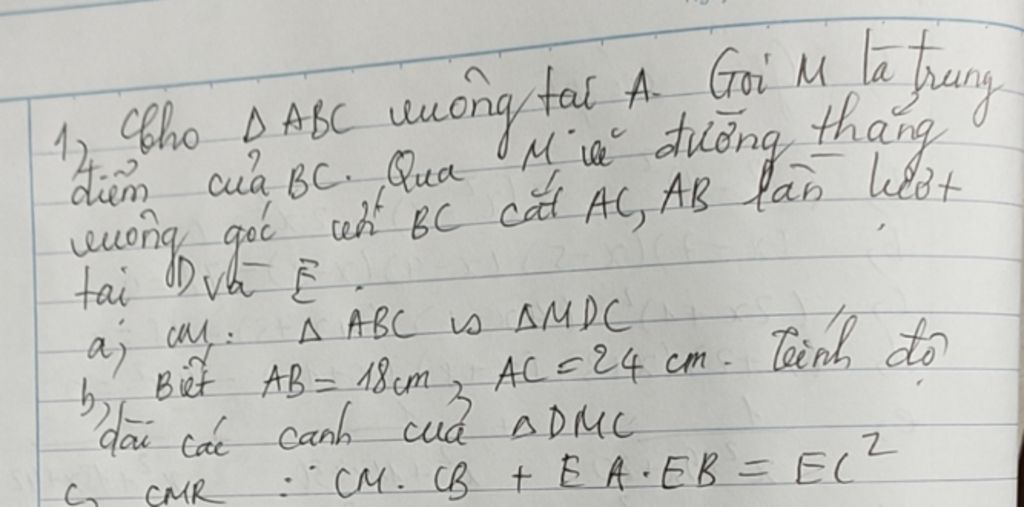 1, Cho Δ ABC vuông tại A. Gọi M là trung
điểm của BC. Qua M vẽ đường thẳng
vuông góc với BC cắt AC, AB lần lượt
tại D và E.
a, CM: Δ ABC ∽ ΔMDC
b, Biết AB = 18cm, AC = 24 cm. Tính độ
dài các cạnh của ΔDMC
c, CMR : CM. CB + EA.EB = EC²